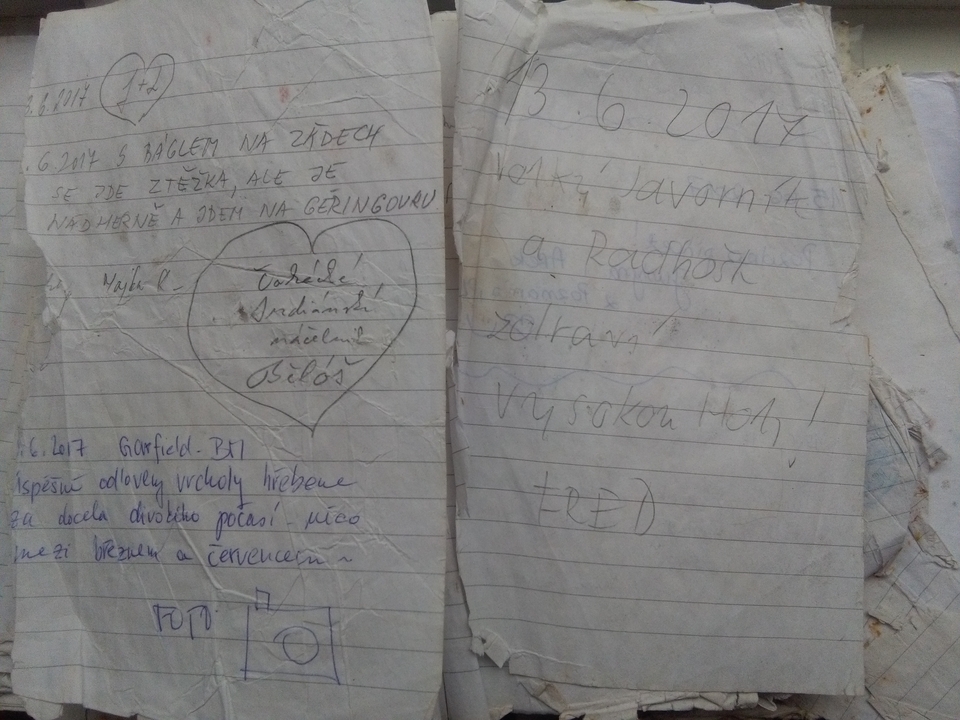 .6.2017 1+2
.6.2017 S BÁGLEM NA ZÁDECH
SE JDE ZTĚŽKA, ALE JE
NÁDHERNĚ A JDEM NA GERINGOVKU
Majka R-
náčelník
Běloš
.6.2017 Garfield - BM
úspěšně odloveny vrcholy hřebene
za docela divokého počasí - něco
mezi březnem a červencem ~
FOTO
13.6.2017
Velký Javorník
a Radhošť
zdraví
Vysokou Holi!
FRED